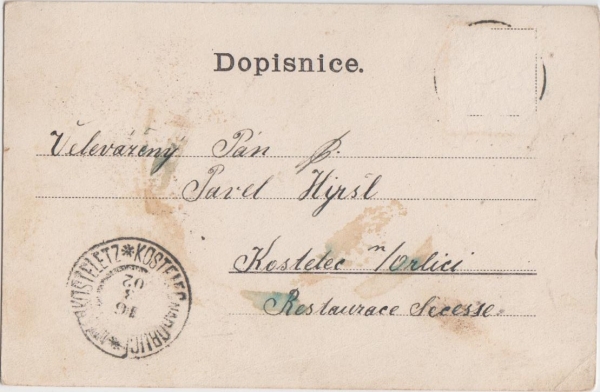 Dopisnice.
Velevážený Pán P.
Pavel Hyršl
Kostelec n/Orlicí
Restaurace Secesse.
KOSTELETZ * KOSTELEC NAD ORLICÍ *
16
3
02